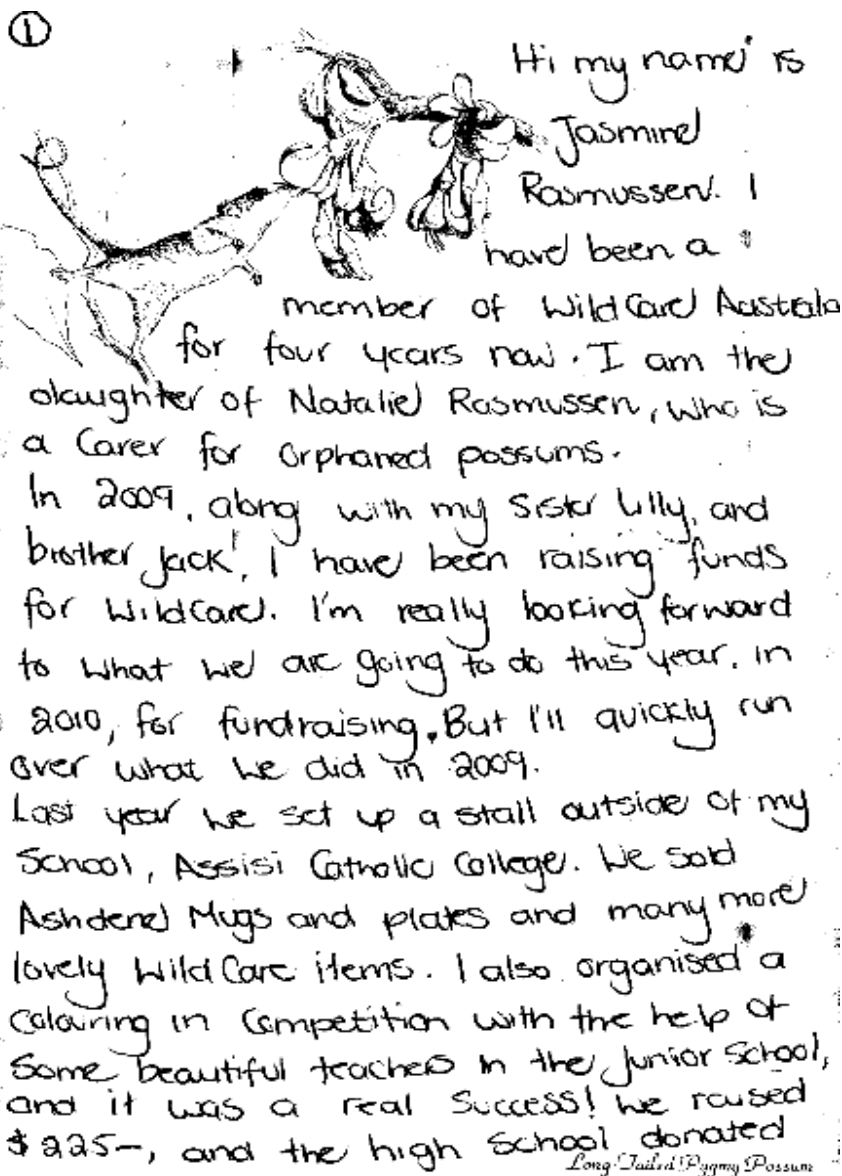 ①
Hi my name is
Jasmine
Rasmussen. I
have been a
member of WildCare Australa
for four years now. I am the
daughter of Natalie Rasmussen, who is
a Carer for orphaned possums.
In 2009, along with my Sister Lilly, and
brother Jack, I have been raising funds
for WildCare. I'm really looking forward
to what we are going to do this year, in
2010, for fundraising. But I'll quickly run
over what we did in 2009.
Last year we set up a stall outside of my
School, Assisi Catholic College. We sold
Ashdene Mugs and plates and many more
lovely WildCare items. I also organised a
colouring in Competition with the help of
Some beautiful teachers in the junior School,
and it was a real Success! We raised
$225-, and the high School donated
Long-Tailed Pygmy Possum